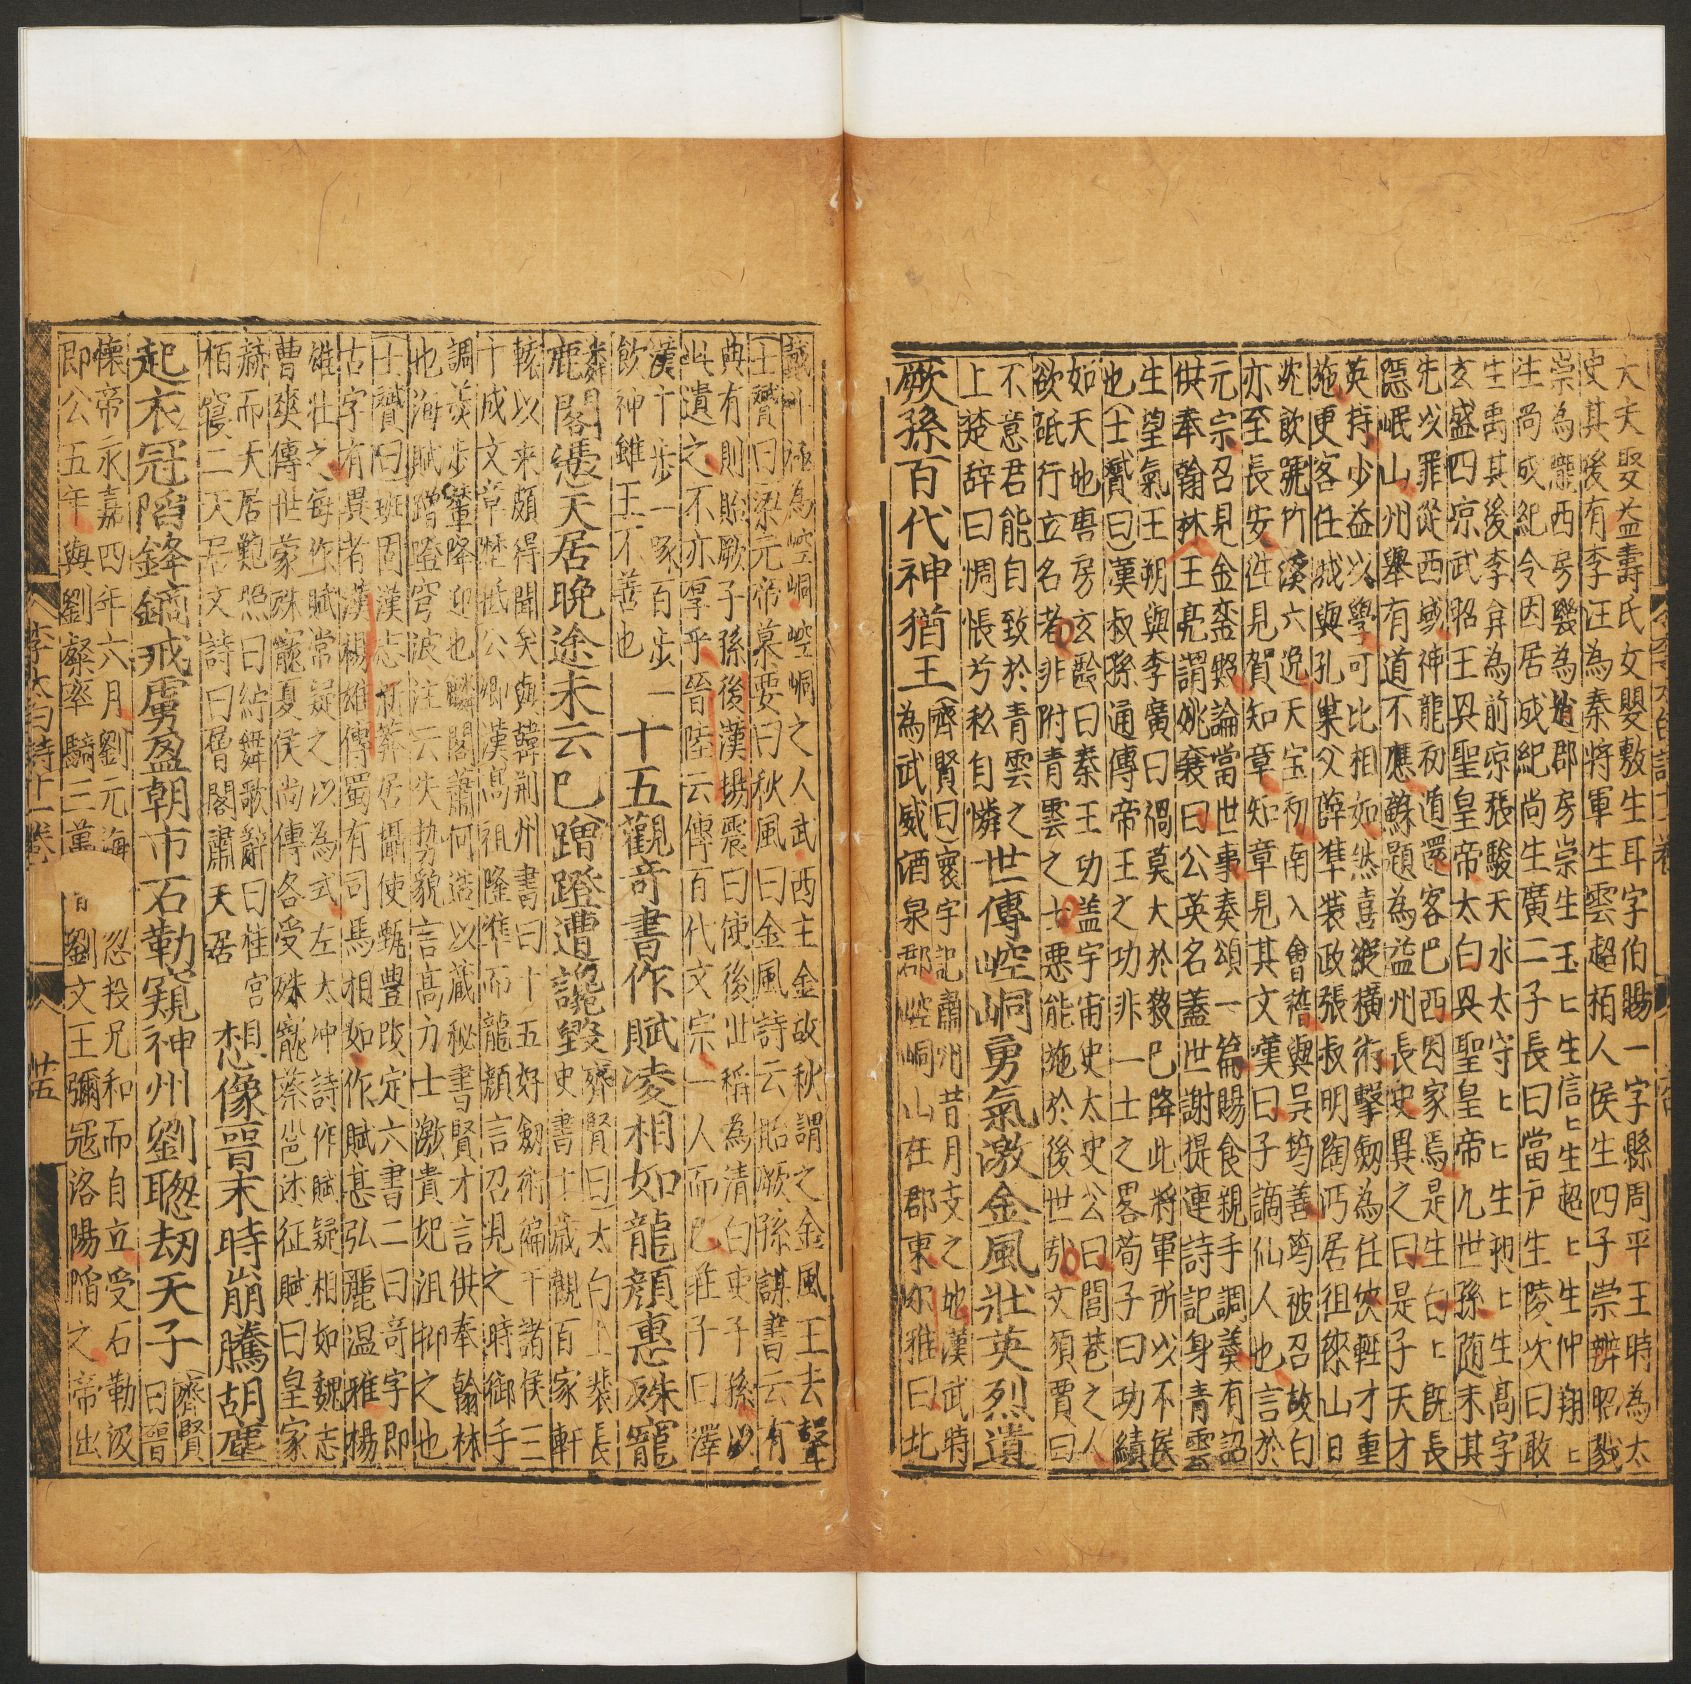 大夫娶益壽氏女嬰敷生耳字伯賜一字縣周平王時為太
史其後有李汪為秦將軍生雲超栢人侯生四子崇辨昭璣
崇為隴西房璣為趙郡房崇生玉匕生信匕生超匕生仲翔匕
生尚成紀令因居成紀尚生廣二子長曰當户生陵次曰敢
生禹其後李弇為前凉張駿天水太守匕匕生昶匕生髙字
玄盛四凉武昭王㒷聖皇帝太白㒷聖皇帝九世孫随末其
先以罪從西域神龍初遁還客巴西因家焉是生白匕旣長
隱岷山州舉有道不應蘇題為益州長史異之曰是子天才
英持少益以學可比相如然喜縱橫術擊劒為任俠輕才重
施更客任城與孔巢父薛準裴政張叔明陶沔居徂徠山日
沈飲號竹溪六逸天宝初南入會稽與吴筠善筠被召故白
亦至長安徃見賀知章知章見其文嘆曰子謫仙人也言於
元宗召見金鑾殿論當世事奏頌一篇賜食親手調羹有詔
供奉翰林王亮謂姚襄曰公英名蓋世謝提連詩記身青雲
生望氣王朔與李廣曰禍莫大於殺巳降此將軍所以不侯
也士贇曰漢叔孫通傳帝王之功非一士之畧荀子曰功績
如天地唐房玄齡曰秦王功盖宇宙史太史公曰閭巷之人
欲砥行立名者非附青雲之士悪能施於後世㢤文須賈曰
不意君能自致於青雲之
上楚辞曰惆悵兮私自憐
世傳崆峒勇氣激金風壮英烈遺
厥孫百代神猶王
齊賢曰寰宇記肅州昔月支之地漢武時
為武威酒泉郡崆峒山在郡東尔雅曰北
戴斗極為崆峒崆峒之人武西主金故秋謂之金風王去聲
士贇曰梁元帝慕要曰秋風曰金風詩云貽厥孫謀書云有
典有則貽厥子孫後漢揚震曰使後世稱為清白吏子孫以
此遺之不亦厚乎晉陸云傳百代文宗一人而巳莊子曰澤
䧹十步一啄百步一
飲神雖王不善也
十五觀竒書作賦凌相如龍顔惠殊寵
麟閣憑天居晩途未云巳蹭蹬遭讒毀
齊賢曰太白上裴長
史書書十歲觀百家軒
轅以来頗得聞矣與韓荆州書曰十五好劒術徧干諸侯三
十成文章歷抵公卿漢高祖隆準而龍顔言召見之時御手
調羮步輦降迎也麟閣蕭何造以藏秘書賢才言供奉翰林
也海賦蹭蹬穹波注云失勢貌言高力士激貴妃沮抑之也
士贇曰班固漢志新莽居攝使甄豊改定六書二曰竒字即
古字有異者漢楊雄傳蜀有司馬相如作賦甚弘麗温雅楊
雄壮之每作賦常擬之以為式左太冲詩作賦疑相如魏志
曹爽傳世蒙殊寵夏侯尚傳各受殊寵蔡邕述征賦曰皇家
赫而天居鮑照曰紵舞歌辭曰桂宫
栢寢二天居文詩曰層閣肅天居
想像晋末時崩騰胡塵
起衣冠陷鋒鏑戎虜盈朝市石勒窺神州劉聦刼天子
齊賢
曰晉
懷帝永嘉四年六月劉元海
忿投兄和而自立受石勒汲
即公五年與劉粲率騎三萬
劉文王彌冦洛陽陷之帝出
李太白詩十一卷
廿五